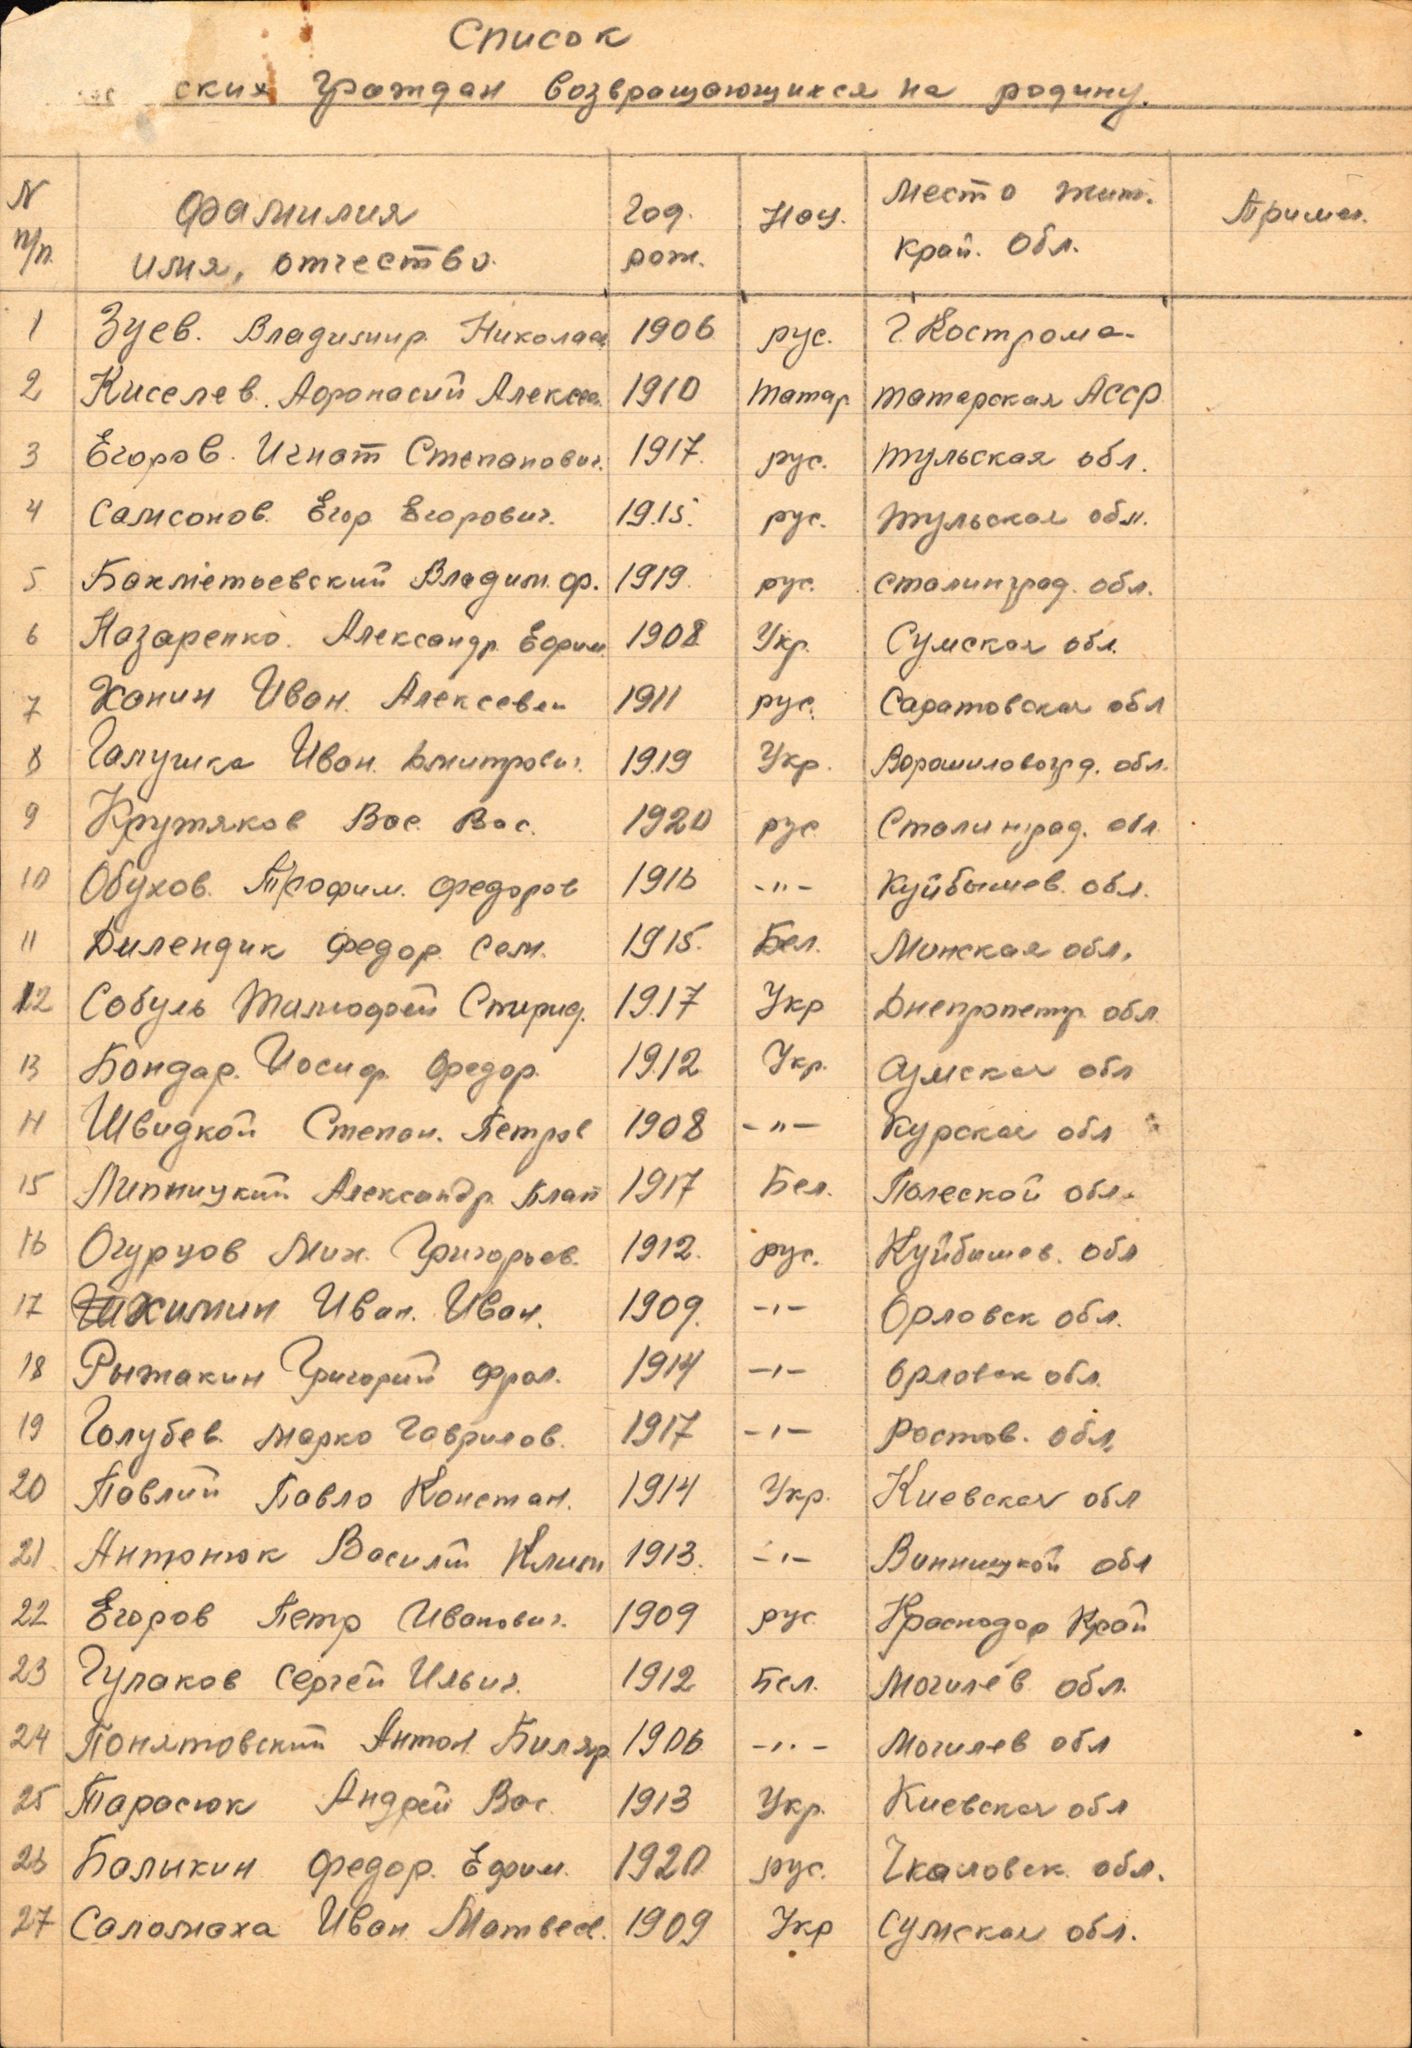 Список
ских граждан возвращающихся на родину.
N п/п. Фамилия имя, отчество. Год. рож. Нац. Место жит. край. Обл. Примеч.
1 Зуев. Владимир. Николаев 1906 рус. г. Кострома.
2 Киселев. Афонасий Алексеев. 1910 татар. татарская АССР
3 Егоров. Игнат Степанович. 1917. рус. тульская обл.
4 Самсонов. Егор Егорович. 1915. рус. тульская обл.
5 Бакметьевский Владим. Ф. 1919. рус. сталинград. обл.
6 Назаренко. Александр. Ефим. 1908 Укр. Сумская обл.
7 Ханин Иван. Алексеевич 1911 рус. Саратовская обл
8 Галушка Иван. Дмитрович. 1919 Укр. Ворошиловогрд. обл.
9 Крутяков Вас. Вас. 1920 рус Сталинград. обл
10 Обухов. Трофим. Федоров 1916 -"- Куйбышев. обл.
11 Дилендик Федор. Сем. 1915. Бел. Минская обл.
12 Собуль Тимофей Спирид. 1917 Укр Днепропетр. обл
13 Бондар. Иосиф. Федор. 1912 Укр. Сумская обл
14 Швидкой Степан. Петров 1908 -"- Курская обл
15 Липницкий Александр. Влад 1917 Бел. Полеской обл.
16 Огурцов Мих. Григорьев. 1912. рус. Куйбышев. обл
17 Химин Иван. Иван. 1909. -"- Орловск обл.
18 Рыжакин Григорий Фрол. 1914 -"- Орловск обл.
19 Голубев. Марко Гаврилов. 1917 -"- Ростов. обл.
20 Павлий Павло Констан. 1914 Укр. Киевская обл
21 Антонюк Василий Клим 1913. -"- Винницкой обл
22 Егоров Петр Иванович. 1909 рус. Краснодар Край
23 Гулаков Сергей Ильич. 1912 Бел. Могилёв обл.
24 Понятовский Антон 1906 -"- Могилев обл
25 Тарасюк Андрей Вас. 1913 Укр. Киевская обл
26 Балыкин Федор. Ефим. 1920 рус. Чкаловск. обл.
27 Саламаха Иван Матвеев. 1909 Укр Сумская обл.